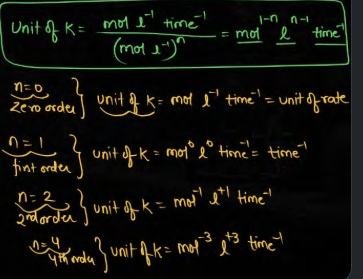 Unit of K = mol l⁻¹ time⁻¹ / (mol l⁻¹)ⁿ = mol¹⁻ⁿ lⁿ⁻¹ time⁻¹
n=0 zero order } unit of K = mol l⁻¹ time⁻¹ = unit of rate
n=1 first order } unit of K = mol⁰ l⁰ time⁻¹ = time⁻¹
n=2 2nd order } unit of K = mol⁻¹ l⁺¹ time⁻¹
n=4 4th order } unit of K = mol⁻³ l⁺³ time⁻¹